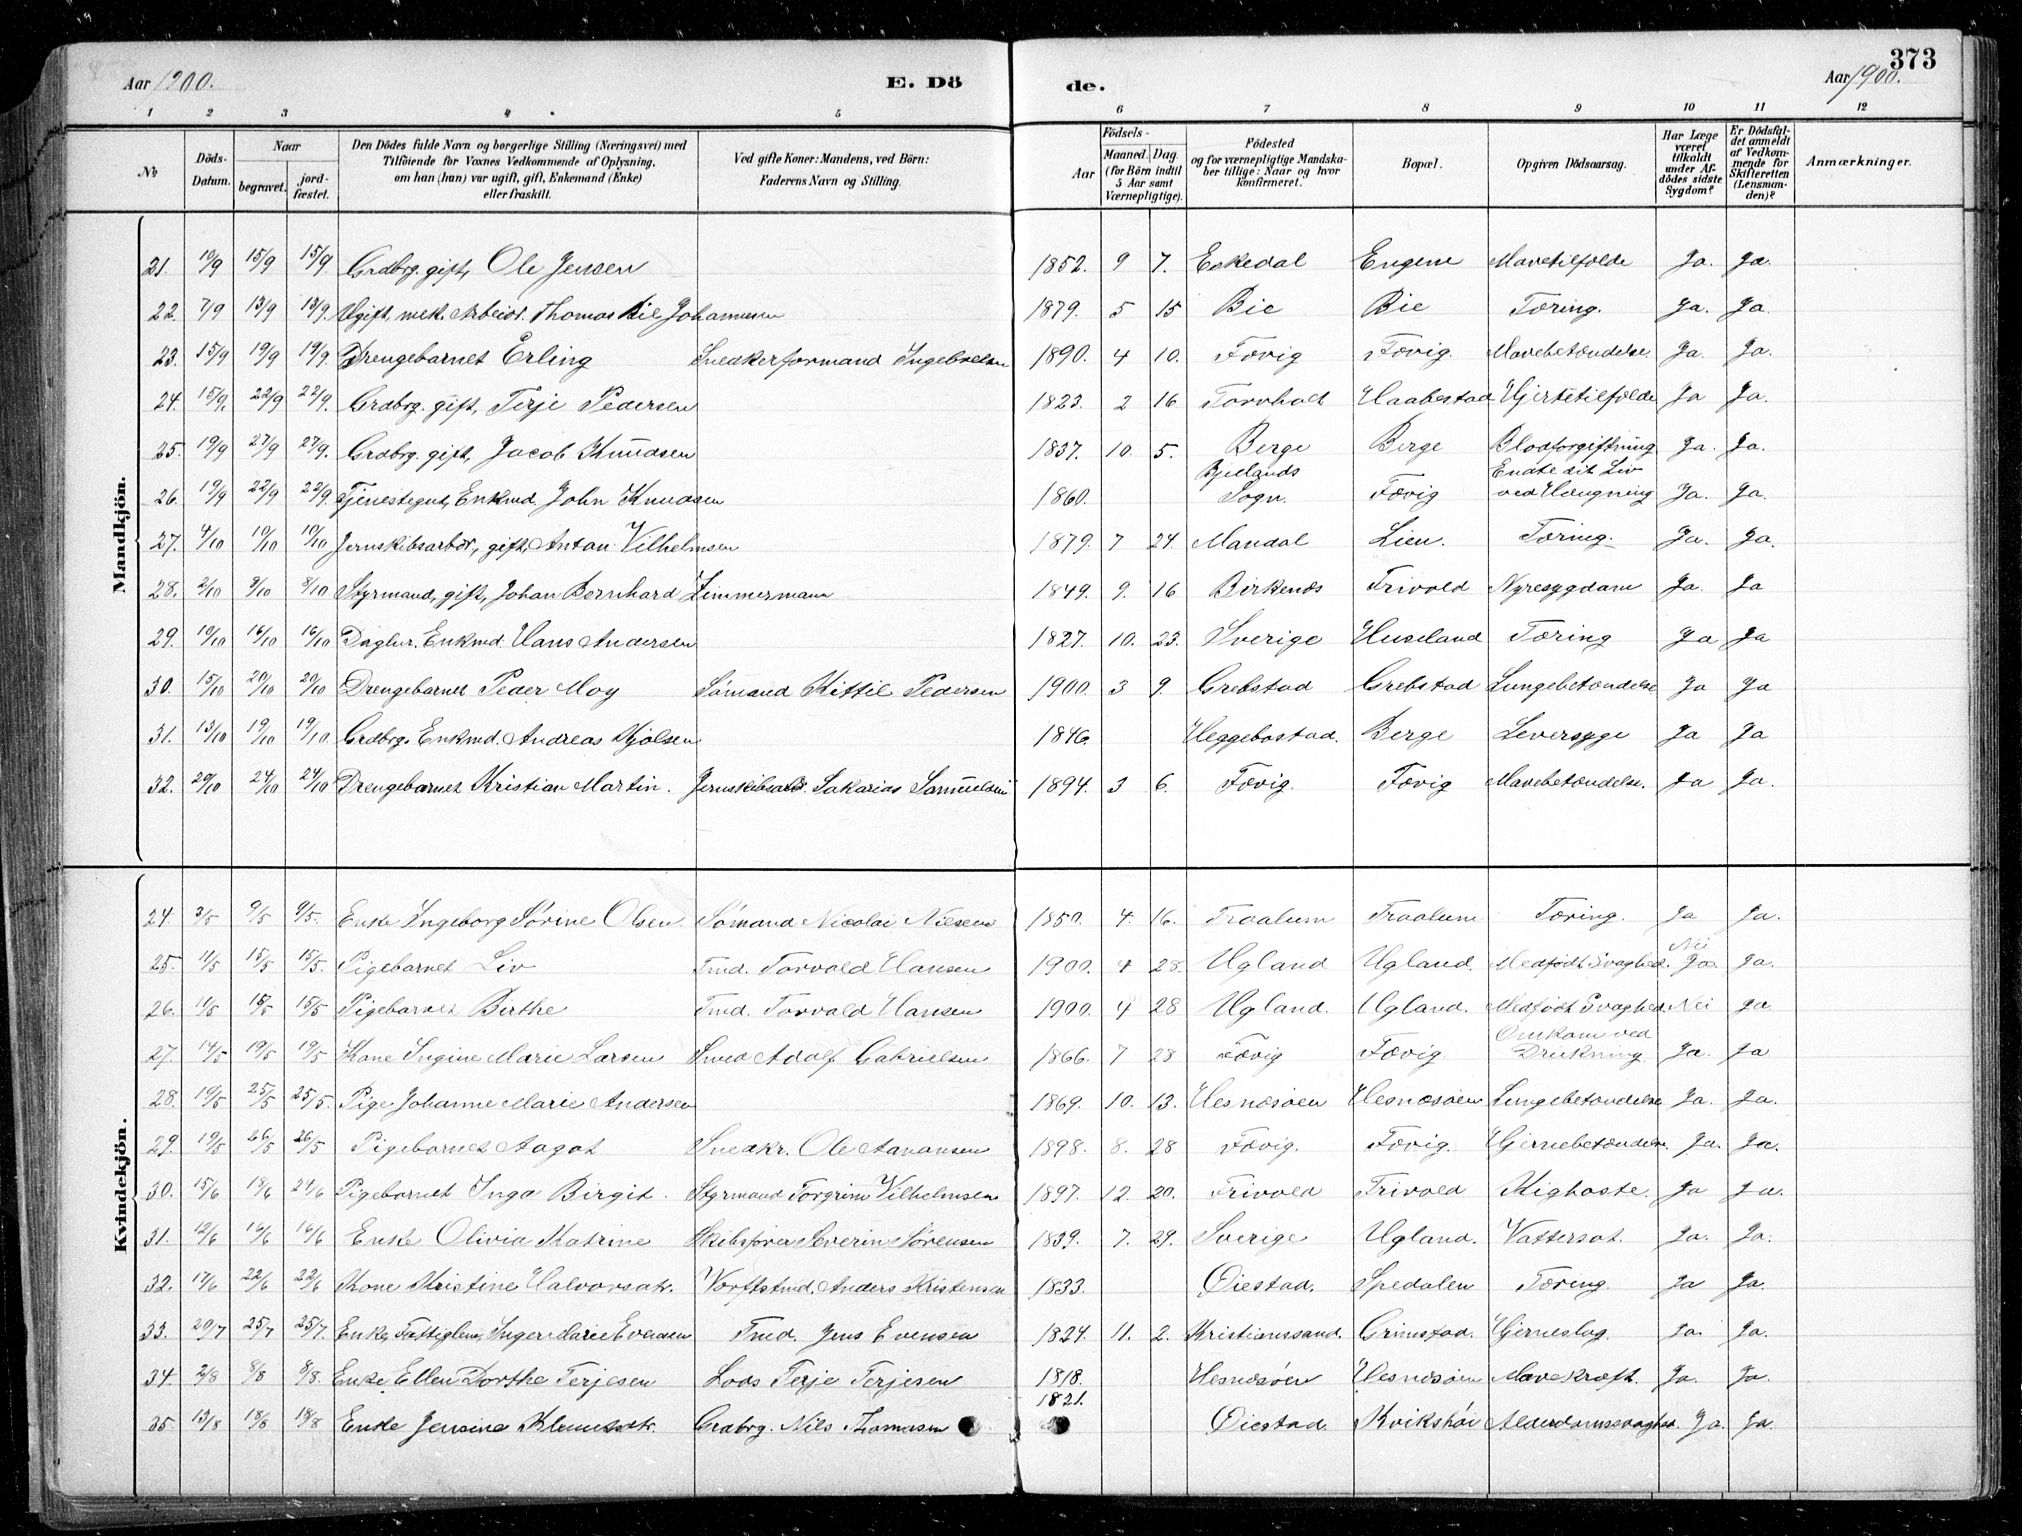 373
Aar 1900. E. Dö de. Aar 1900.
1 2 3 4 5 6 7 8 9 10 11 12
No Döds-Datum. Naar begravet. jordfæstet. Den Dödes fulde Navn og borgerlige Stilling (Næringsvei) med Tilföiende for Voxnes Vedkommende af Oplysning, om han (hun) var ugift, gift, Enkemand (Enke) eller fraskilt. Ved gifte Koner: Mandens, ved Börn: Faderens Navn og Stilling. Födsels- Aar Maaned. Dag. (for Börn indtil 5 Aar samt Værnepligtige). Födested og for værnepligtige Mandskaber tillige: Naar og hvor konfirmeret. Bopæl. Opgiven Dödsaarsag. Har Læge været tilkaldt under Afdödes sidste Sygdom? Er Dödsfaldet anmeldt af Vedkommende for Skifteretten (Lensmanden)? Anmærkninger.
Mandkjön.
21. 10/9 15/9 15/9. Grdbrg. gift, Ole Jensen 1852. 9 7. Eskedal Engene Mavetilfælde Ja. Ja.
22. 7/9 13/9 13/9. Ugift, mek. Arbeidr. Thomas Bie Johannesen 1879. 5 15 Bie Bie Tæring. Ja. Ja.
23. 15/9 19/9 19/9. Drengebarnet Erling Snedkerformand Ingebretsen 1890. 4 10. Fævig Fævig. Mavebetændelse. Ja. Ja.
24. 15/9. 22/9 22/9. Grdbrg. gift, Terje Pedersen 1823. 2 16 Haabestad Hjertetilfælde Ja Ja.
25. 19/9 27/9 27/9. Grdbrg. gift, Jacob Knudsen 1837. 10. 5. Berge Berge Blodforgiftning Ja. Ja.
26. 19/9 22/9 22/9. Tjenestegut, Enkmd. John Knudsen 1860. Bjellands Sogn. Fævig Endte sit Liv ved Hængning Ja. Ja.
27. 4/10 10/10 10/10 Jernskibsarbdr., gift, Anton Vilhelmsen 1879. 7 24. Mandal Lien. Tæring. Ja. Ja.
28. 2/10 9/10 8/10 Styrmand, gift, Johan Bernhard Zimmermann 1849. 9. 16 Birkenæs Frivold Nyresygdom Ja. Ja
29. 10/10 16/10 16/10 Daglnr. Enkmd. Hans Andersen 1827. 10. 23. Sverige Huseland Tæring Ja Ja
30. 15/10 20/10 20/10 Drengebarnet Peder Moy Sömand Kittil Pedersen 1900. 3 9. Grebstad Grebstad Lungebetændelse Ja Ja
31. 13/10 19/10 19/10 Grdbrg. Enkmd. Andreas Kjölsen 1846. Heggebostad. Berge Leversyge Ja Ja
32. 20/10 24/10 24/10 Drengebarnet Kristian Martin. Jernskibsarbr. Sakarias Samuelsen 1894. 3 6. Fævig. Fævig Mavebetændelse. Ja Ja.
Kvindekjön.
24. 3/5 9/5 9/5. Enke Ingeborg Sörine Olsen. Sömand Nicolai Nilsen 1850. 4. 16. Traalum Traalum Tæring. Ja Ja.
25. 11/5 15/5 15/5. Pigebarnet Liv Tmd. Torvald Hansen 1900. 4 28. Ugland Ugland. Medfødt Svaghed. Nei Ja. Ja.
26. 11/5 15/5 15/5 Pigebarnet Birthe Tmd. Torvald Hansen 1900. 4 28 Ugland. Ugland. Medfødt Svaghed. Nei Ja
27. 14/5 19/5 19/5 Kone Ingine Marie Larsen Smed Adolf Gabrielsen 1866. 7 28 Fævig Fævig. Omkom ved Drukning Ja. Ja
28. 19/5 25/5 25/5. Pige Johanne Marie Andersen 1869. 10. 13. Hesnæsöen Hesnæsöen Lungebetændelse Ja. Ja.
29. 19/5 26/5 26/5 Pigebarnet Aagot Snedkr. Ole Aanonsen 1898. 8. 28 Fævig. Fævig. Hjernebetændelse. Ja. Ja.
30. 15/6 18/6 24/6 Pigebarnet Inga Birgit. Styrmand Torgrim Vilhelmsen 1897. 12. 20. Frivold Frivold Kighoste. Ja Ja.
31. 12/6 16/6 16/6 Enke Olivia Katrine Skibsförer Severin Sörensen 1839. 7. 29. Sverige Ugland. Vattersot. Ja. Ja.
32. 17/6 22/6 22/6 Kone Kristine Halvorsdtr. Værftstmd. Anders Kristensen 1833. Øiestad. Spedalen Tæring. Ja Ja.
33. 20/7 25/7 25/7. Enke, Fattiglem, Inger Marie Evensen Tmd. Jens Evensen 1824. 11. 2. Kristianssand. Grimstad. Hjerneslag. Ja. Ja.
34. 2/8 8/8 8/8. Enke Ellen Dorthe Terjesen Lods Terje Terjesen 1818. Hesnæsöen Hesnæsöen Mavekræft. Ja. Ja.
35. 13/8 18/8 18/8 Enke Jensine Klemetsdtr. Grdbrg. Nils Thomasen 1821. Øiestad. Kvikshöi Alderdomssvaghed Ja. Ja.